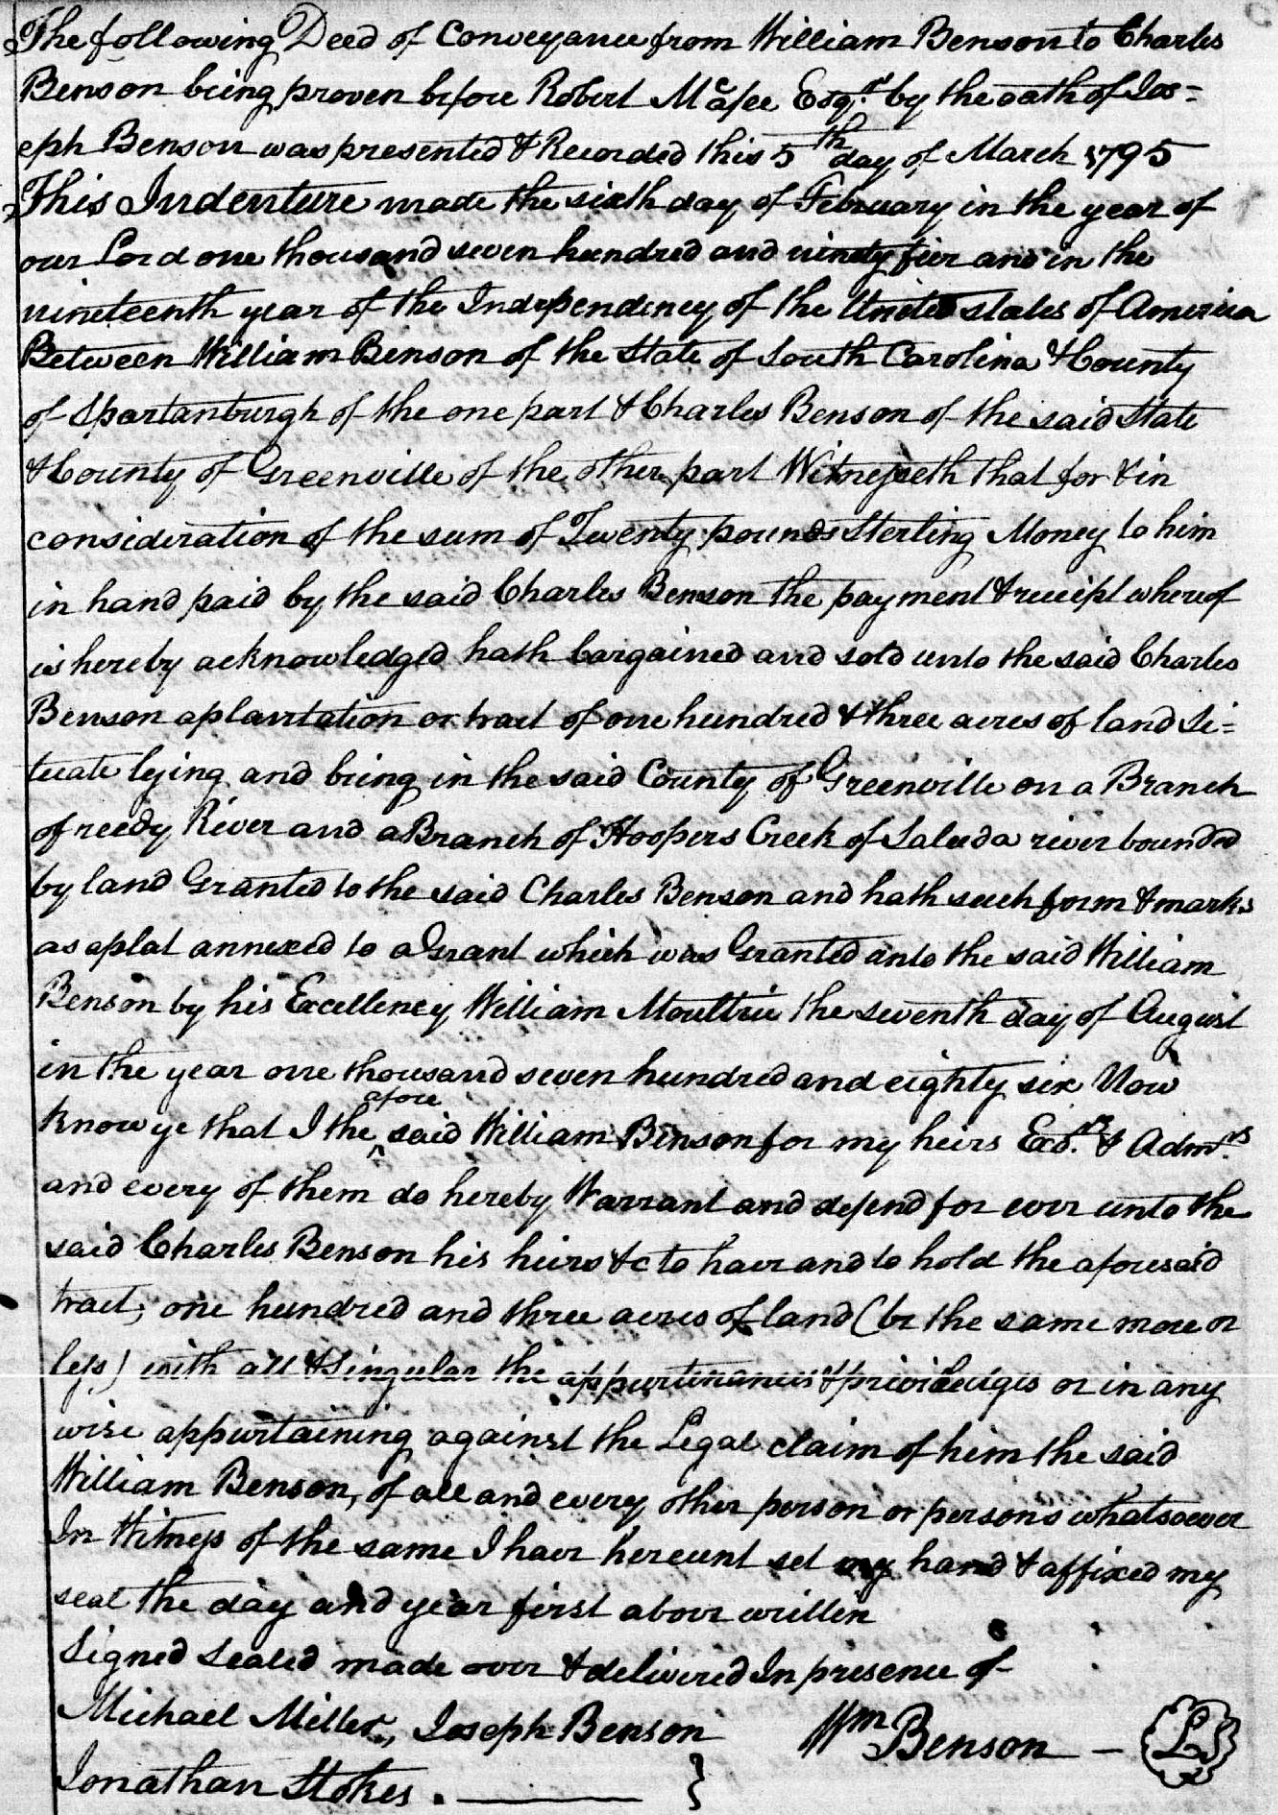 The following Deed of Conveyance from William Benson to Charles
Benson being proven before Robert McAfee Esqr. by the oath of Jos=
eph Benson was presented & Recorded this 5th day of March 1795
This Indenture made the sixth day of February in the year of
our Lord one thousand seven hundred and ninety five and in the
nineteenth year of the Independency of the United states of America
Between William Benson of the State of South Carolina & County
of Spartanburgh of the one part & Charles Benson of the said State
& County of Greenville of the other part Witnesseth that for & in
consideration of the sum of Twenty pounds Sterling Money to him
in hand paid by the said Charles Benson the payment & receipt whereof
is hereby acknowledged hath bargained and sold unto the said Charles
Benson a plantation or tract of one hundred & three acres of land Si=
tuate lying and being in the said County of Greenville on a Branch
of reedy River and a Branch of Hoopers Creek of Saluda river bounded
by land Granted to the said Charles Benson and hath such form & marks
as a plat annexed to a Grant which was Granted unto the said William
Benson by his Excellency William Moultrie the seventh day of August
in the year one thousand seven hundred and eighty six Now
know ye that I the afore said William Benson for my heirs Exd.rs & Admrs.
and every of them do hereby Warrant and defend for ever unto the
said Charles Benson his heirs &c to have and to hold the aforesaid
tract, one hundred and three acres of land (be the same more or
less) with all & Singular the appurtinances & priviledges or in any
wise appurtaining against the Legal claim of him the said
William Benson, of all and every other person or persons whatsoever
In Witness of the same I have hereunt set my hand & affixed my
seal the day and year first above written
Signed Sealed made over & delivered In presence of
Michael Miller, Joseph Benson Wm Benson — LS
Jonathan Stokes. — }